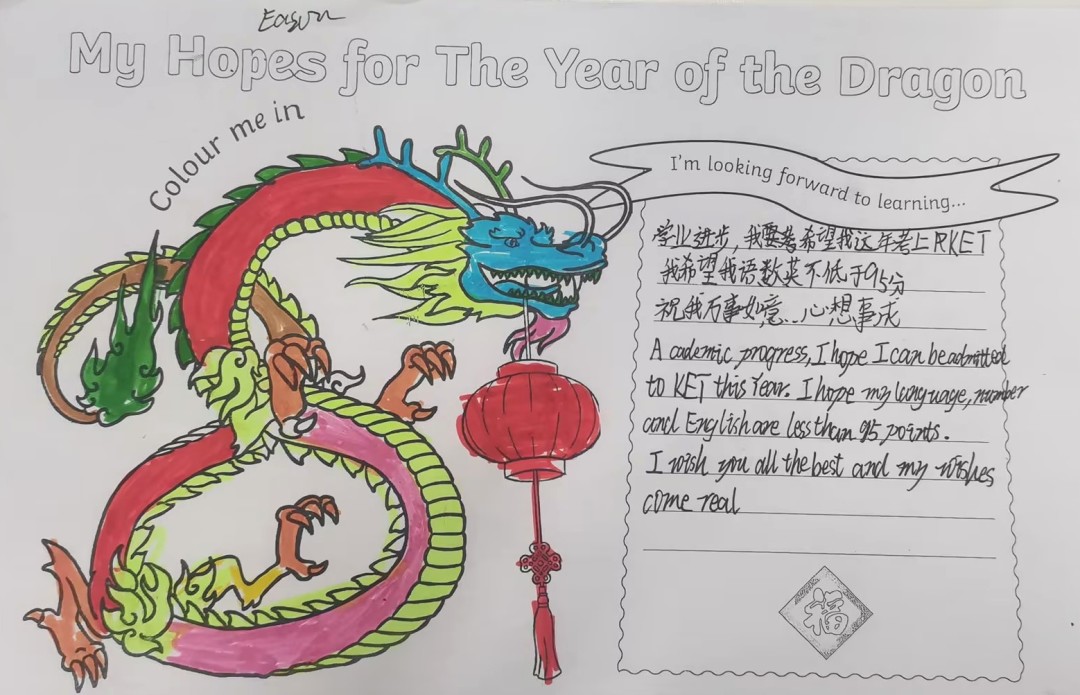 Eason
My Hopes for The Year of the Dragon
Colour me in
I'm looking forward to learning...
学业进步,我要考希望我这年考上RKET
我希望我语数英不低于95分
祝我万事如意...心想事成
Academic progress, I hope I can be admitted
to KET this Year. I hope my language, number
and English are less than 95 points.
I wish you all the best and my wishes
come real
福